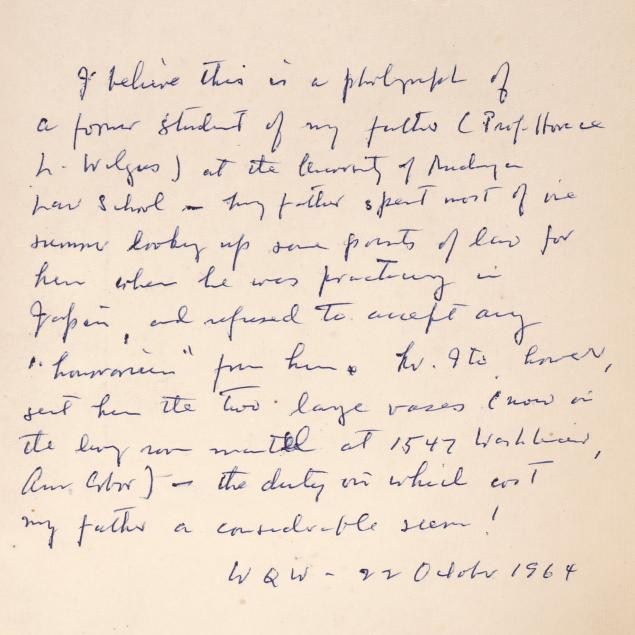 I believe this is a photograph of
a former student of my father (Prof. Horace
L. Wilgus) at the University of Michigan
Law School – My father spent most of one
summer looking up some points of law for
him when he was practicing in
Japan, and refused to accept any
"honorarium" from him. Mr. Ito, however,
sent him the two large vases (now on
the living room mantel at 1547 Washtenaw,
Ann Arbor) – the duty on which cost
my father a considerable sum!
W Q W – 22 October 1964